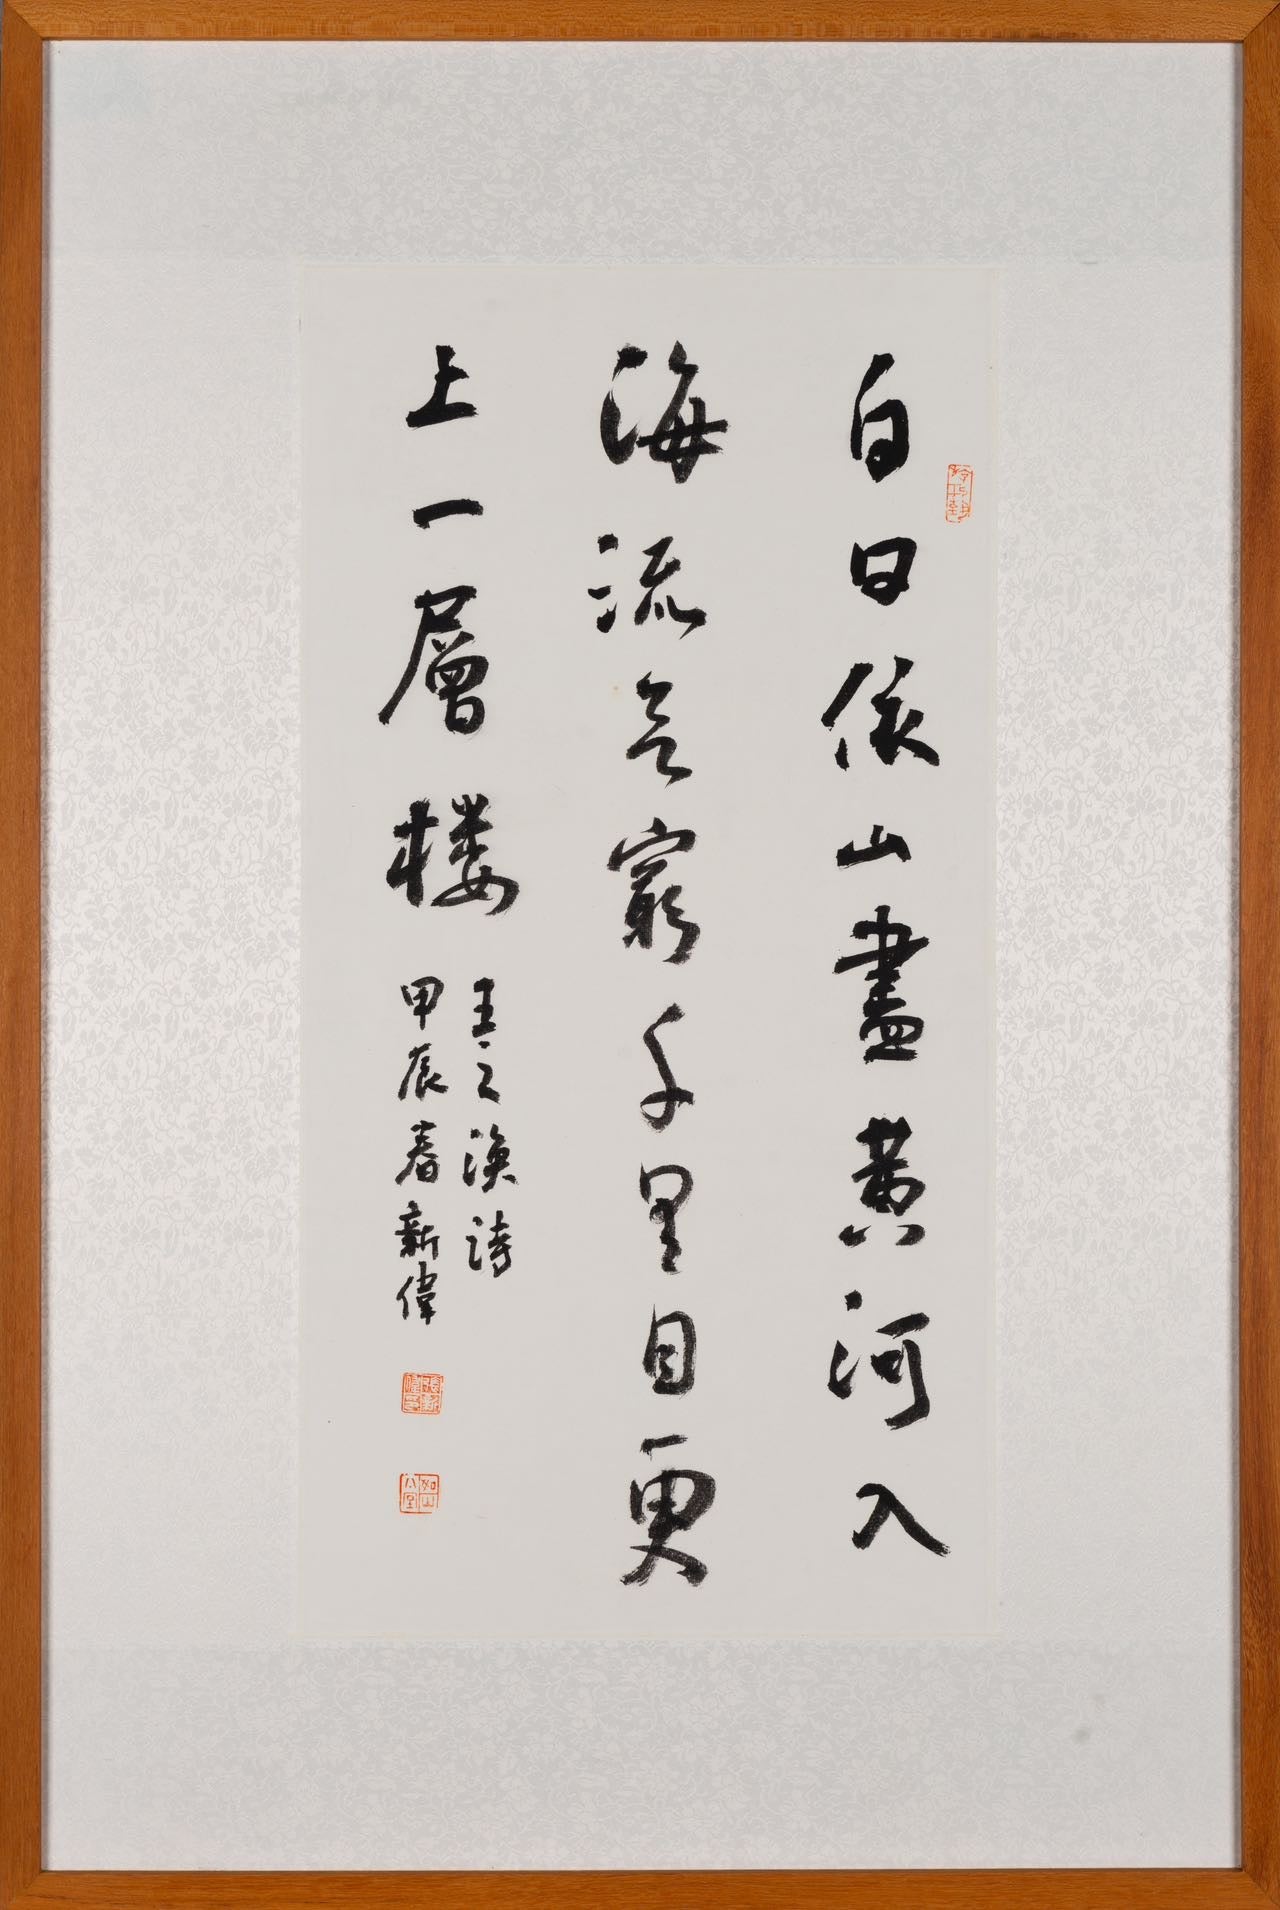 白日依山盡黄河入
海流欲窮千里目更
上一層楼
王之渙詩
甲辰春新偉
張新偉印